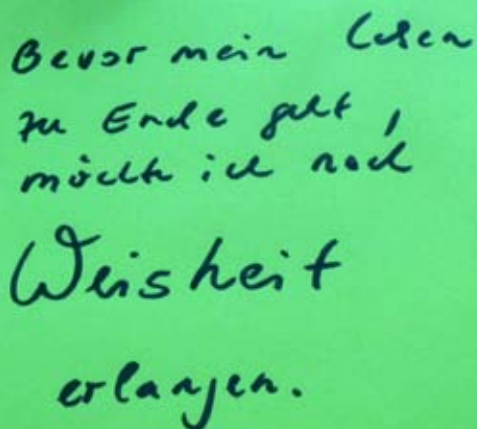 Bevor mein Leben
zu Ende geht,
möchte ich noch
Weisheit
erlangen.